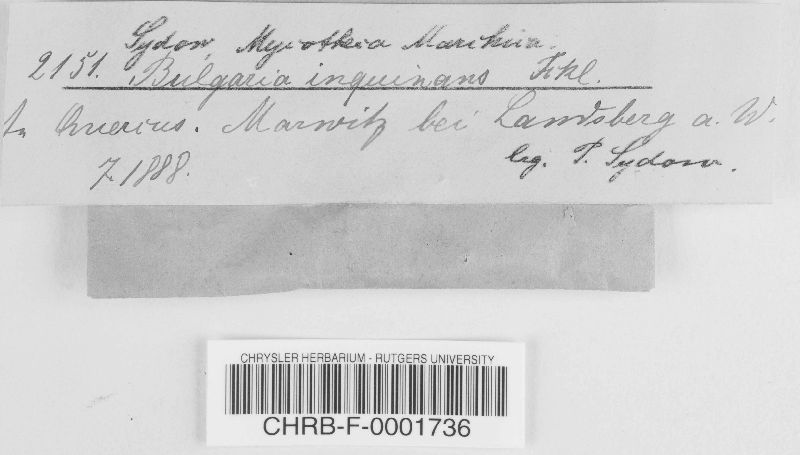 Sydow, Mycotheca Marchica.
2151. Bulgaria inquinans Fkl.
In Quercus. Marwitz bei Landsberg a. W.
7. 1888. leg. P. Sydow.
CHRYSLER HERBARIUM - RUTGERS UNIVERSITY
CHRB-F-0001736